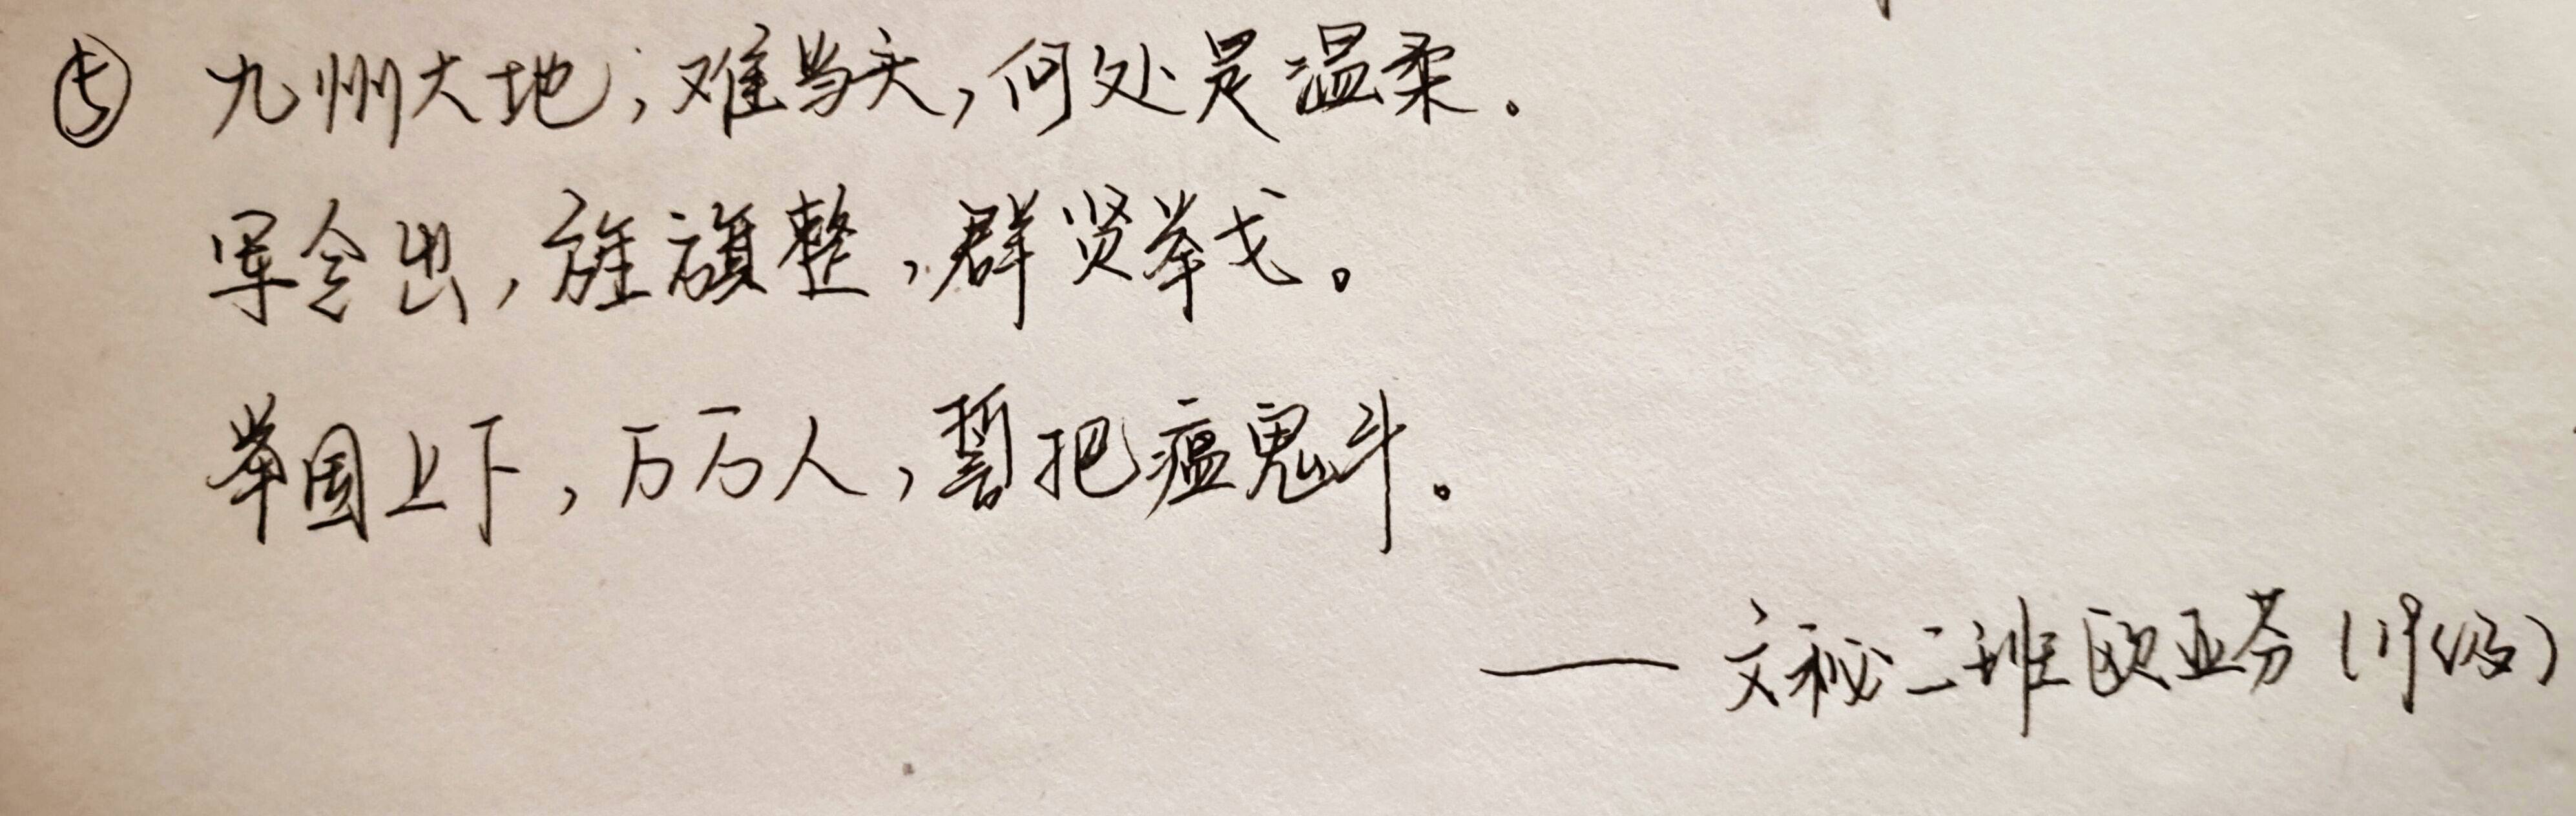 ⑤ 九州大地，难当头，何处是温柔.
军令出，旌旗整，群贤举戈。
举国上下，万万人，誓把瘟鬼斗。
——文秘二班 欧亚芬(19级)